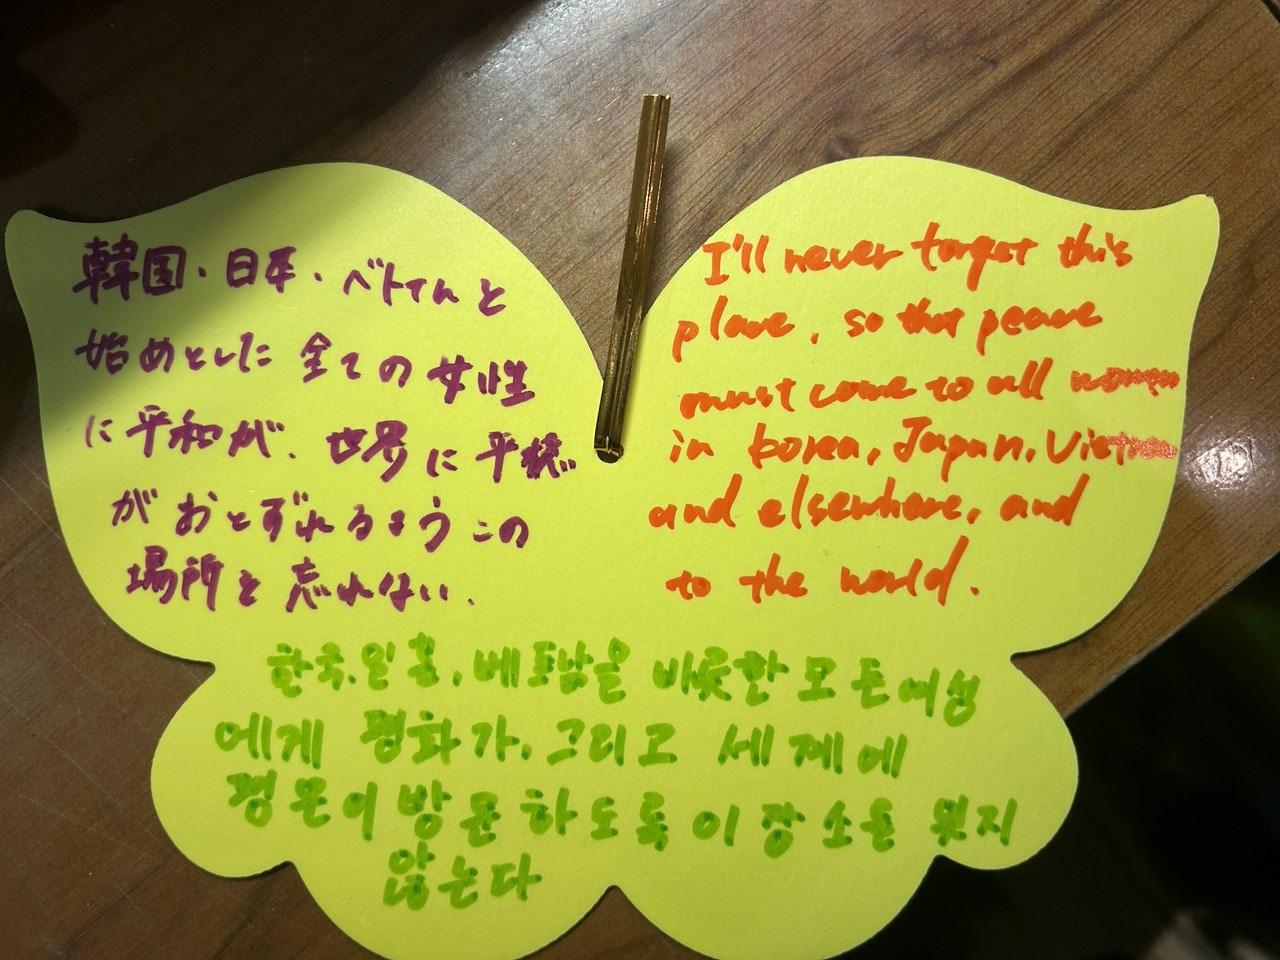 韓国・日本・ベトナムを
始めとした全ての女性
に平和が、世界に平穏
がおとずれるようこの
場所を忘れない.
I'll never forget this
place, so that peace
must come to all women
in Korea, Japan, Vietnam
and elsewhere, and
to the world.
한국.일본,베트남을 비롯한 모든 여성
에게 평화가,그리고 세계에
평온이 방문하도록 이 장소를 잊지
않는다